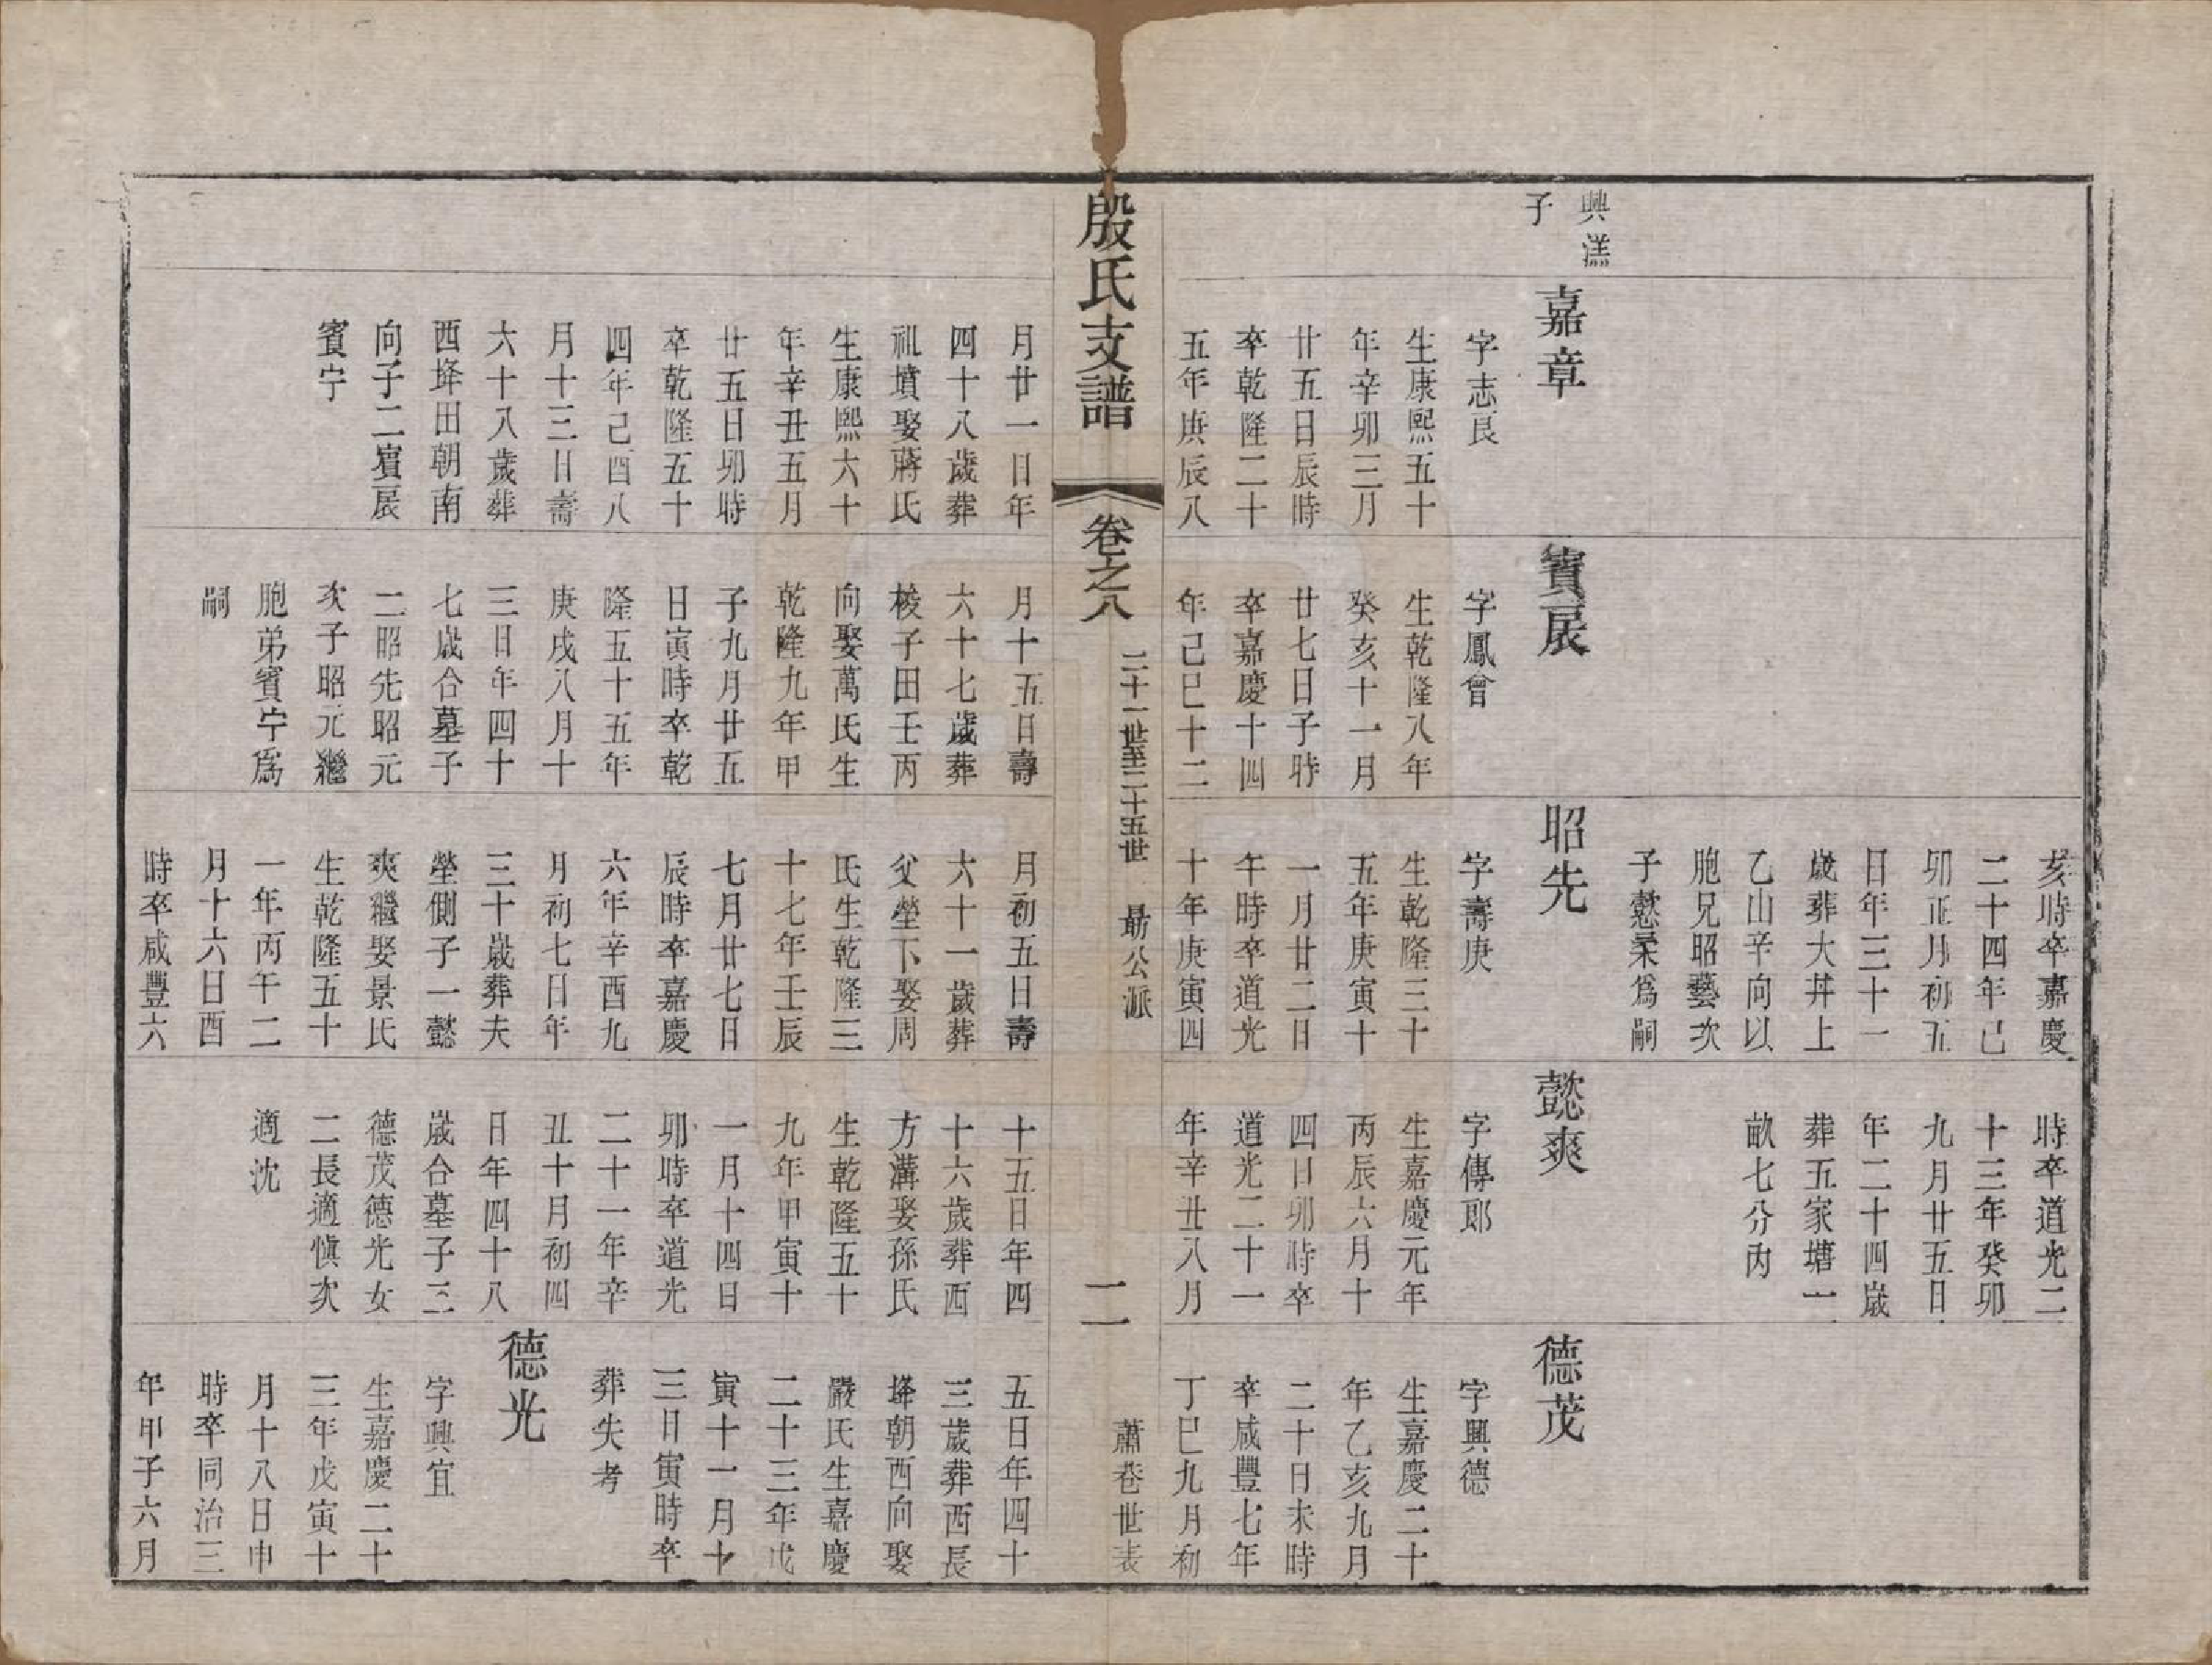 興洋
子
嘉章
字志良
生康熙五十
年辛卯三月
廿五日辰時
卒乾隆二十
五年庚辰八
賓展
字鳳曾
生乾隆八年
癸亥十一月
廿七日子時
卒嘉慶十四
年己巳十二
亥時卒嘉慶
二十四年己
卯正月初五
日年三十一
歲葬大井上
乙山辛向以
胞兄昭藝次
子懋柔爲嗣
昭先
字壽庚
生乾隆三十
五年庚寅十
一月廿二日
午時卒道光
十年庚寅四
時卒道光二
十三年癸卯
九月廿五日
年二十四歲
葬五家塘一
畝七分內
懿爽
字傳郎
生嘉慶元年
丙辰六月十
四日卯時卒
道光二十一
年辛丑八月
德茂
字興德
生嘉慶二十
年乙亥九月
二十日未時
卒咸豐七年
丁巳九月初
殷氏支譜
卷之八
二十一世至二十五世
勗公派
二
蕭巷世表
月廿一日年
四十八歲葬
祖墳娶蔣氏
生康熙六十
年辛丑五月
廿五日卯時
卒乾隆五十
四年己酉八
月十三日壽
六十八歲葬
西垟田朝南
向子二賓展
賓宁
月十五日壽
六十七歲葬
梭子田壬丙
向娶萬氏生
乾隆九年甲
子九月廿五
日寅時卒乾
隆五十五年
庚戌八月十
三日年四十
七歲合墓子
二昭先昭元
次子昭元繼
胞弟賓宁爲
嗣
月初五日壽
六十一歲葬
父塋下娶周
氏生乾隆三
十七年壬辰
七月廿七日
辰時卒嘉慶
六年辛酉九
月初七日年
三十歲葬夫
塋側子一懿
爽繼娶景氏
生乾隆五十
一年丙午二
月十六日酉
時卒咸豐六
十五日年四
十六歲葬西
方溝娶孫氏
生乾隆五十
九年甲寅十
一月十四日
卯時卒道光
二十一年辛
丑十月初四
日年四十八
歲合墓子三
德茂德光女
二長適愼次
適沈
五日年四十
三歲葬西長
垟朝西向娶
嚴氏生嘉慶
二十三年戊
寅十一月十
三日寅時卒
葬失考
德光
字興宜
生嘉慶二十
三年戊寅十
月十八日申
時卒同治三
年甲子六月